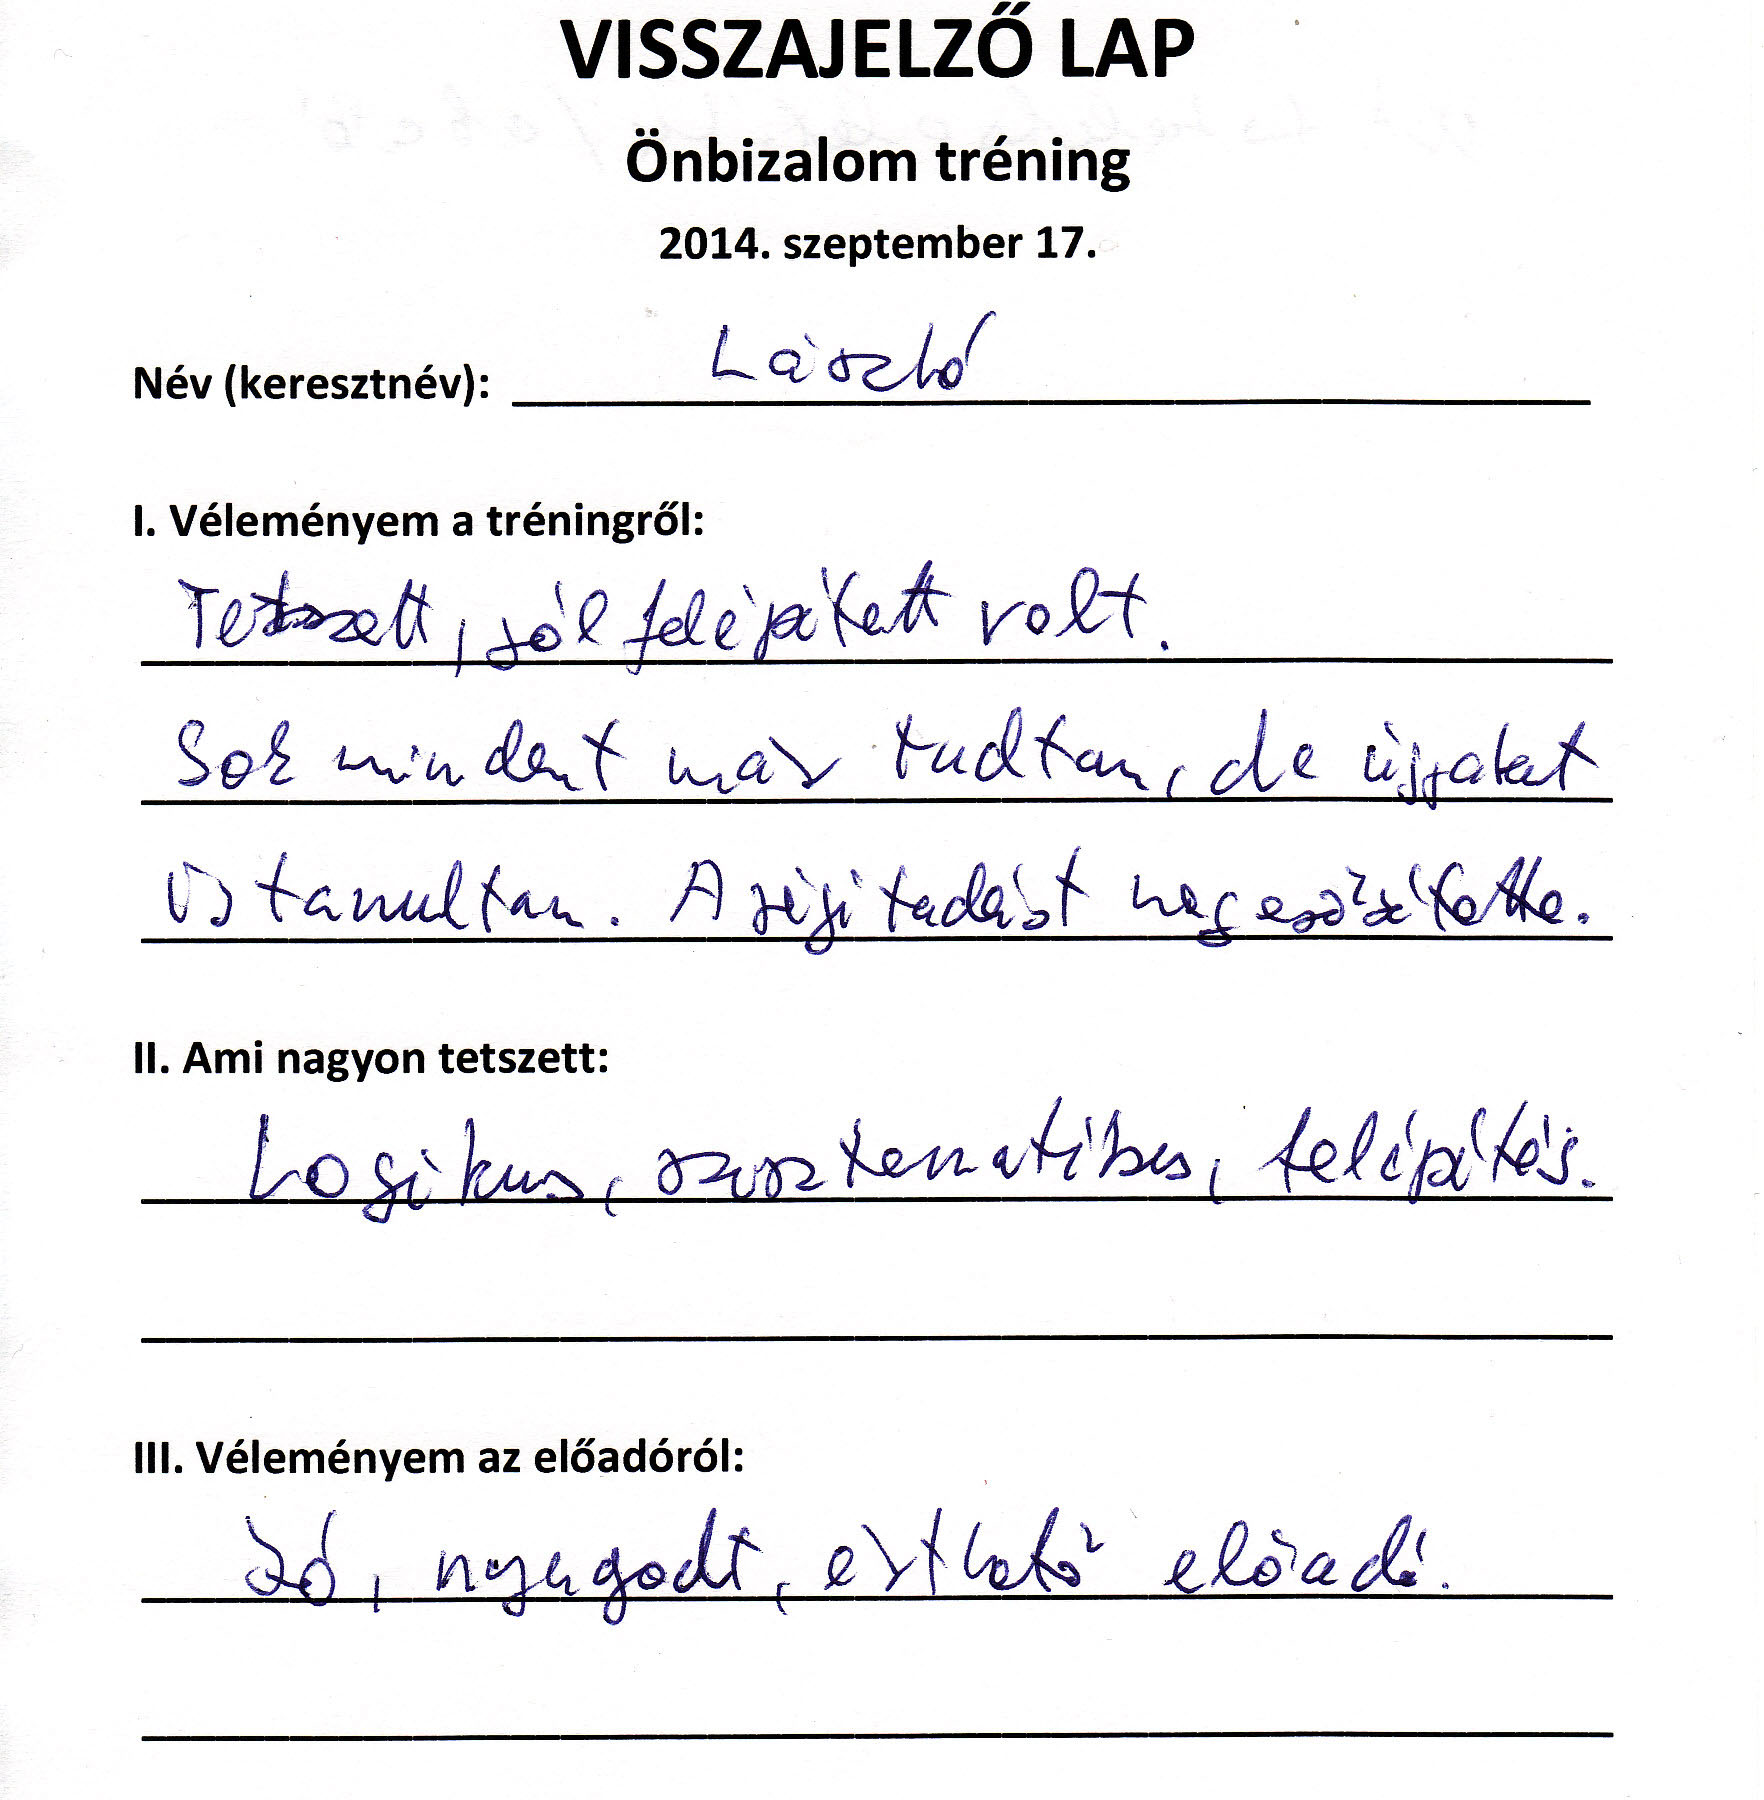 VISSZAJELZŐ LAP
Önbizalom tréning
2014. szeptember 17.
Név (keresztnév): László
I. Véleményem a tréningről:
Tetszett, jól felépített volt.
Sok mindent már tudtam, de újjakat
is tanultam. A régi tudást megerősítette.
II. Ami nagyon tetszett:
Logikus, szisztematikus, felépítés.
III. Véleményem az előadóról:
Jó, nyugodt, érthető előadó.